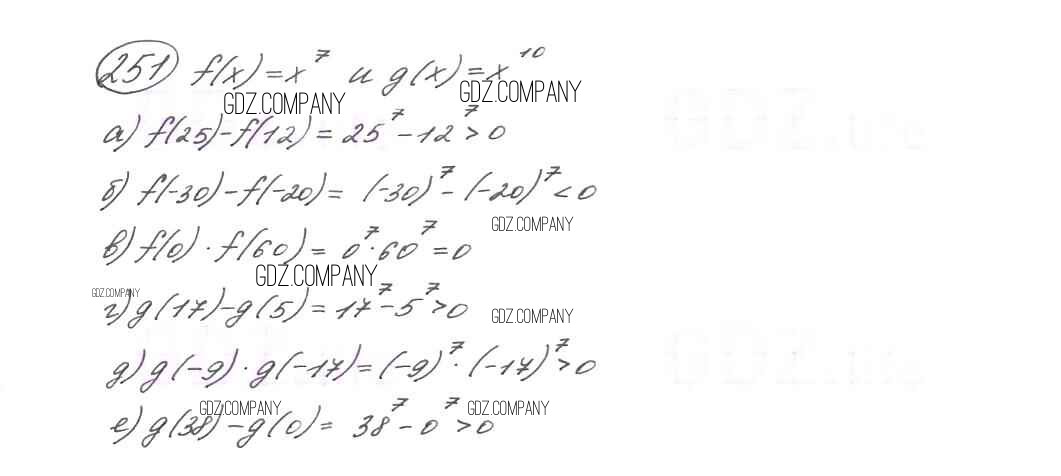 251 f(x) = x⁷ и g(x) = x¹⁰
GDZ.COMPANY GDZ.COMPANY
а) f(25) - f(12) = 25⁷ - 12⁷ > 0
GDZ.life
б) f(-30) - f(-20) = (-30)⁷ - (-20)⁷ < 0
GDZ.COMPANY
в) f(0) · f(60) = 0⁷ · 60⁷ = 0
GDZ.COMPANY
GDZ.COMPANY
г) g(17) - g(5) = 17⁷ - 5⁷ > 0
GDZ.COMPANY
д) g(-9) · g(-17) = (-9)⁷ · (-17)⁷ > 0
GDZ.life
GDZ.COMPANY GDZ.COMPANY
е) g(38) - g(0) = 38⁷ - 0⁷ > 0